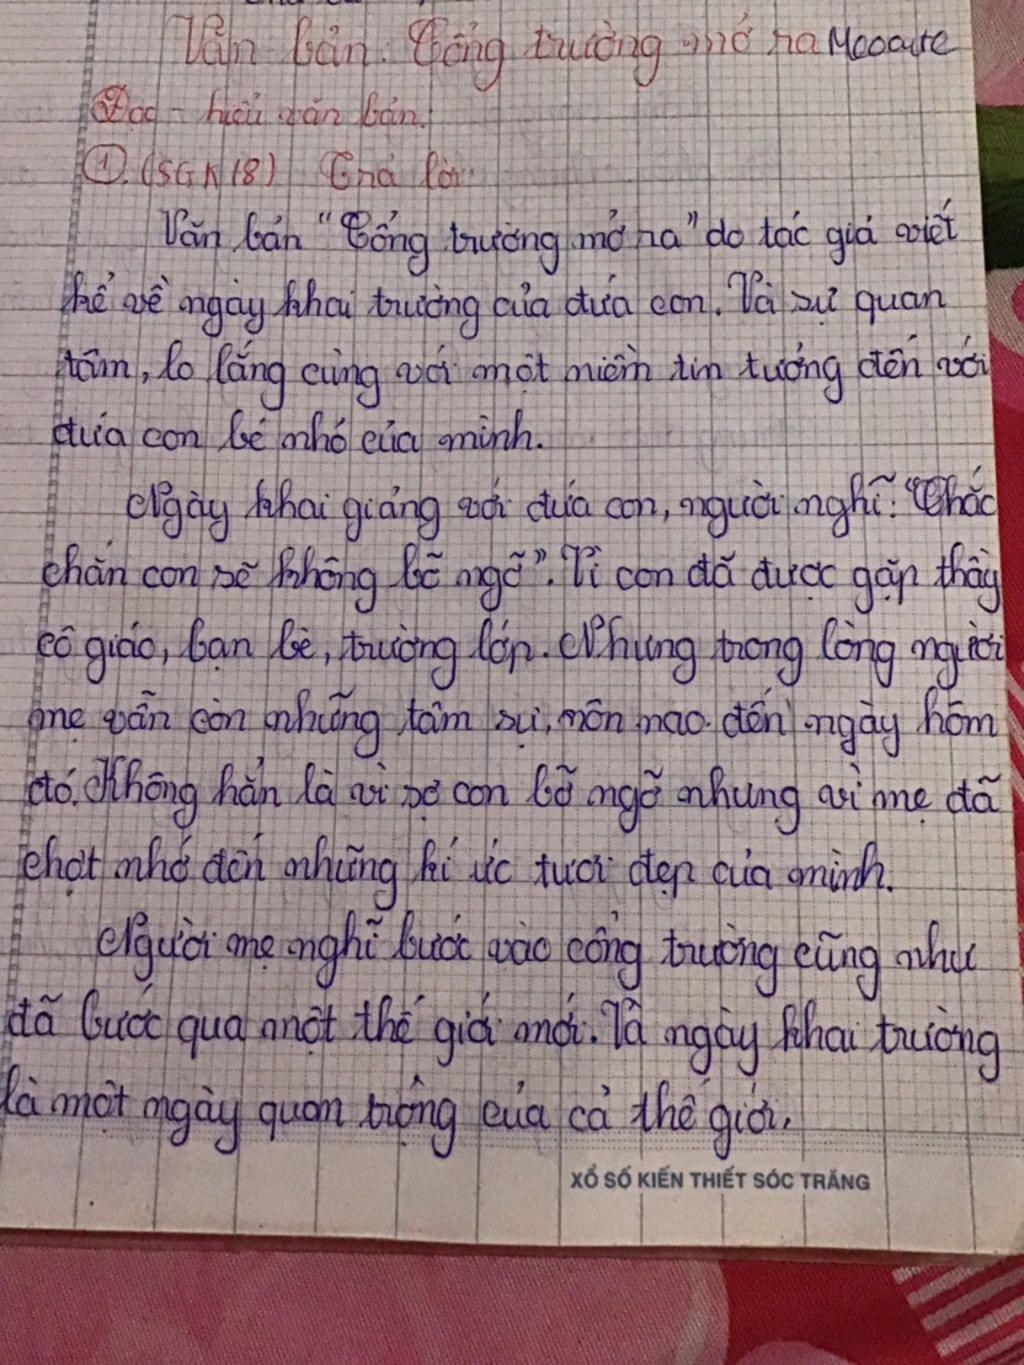 Văn bản. Cổng trường mở ra Mooaute
Đọc - hiểu văn bản.
①. (SGK/8) Trả lời
Văn bản "Cổng trường mở ra" do tác giả viết
kể về ngày khai trường của đứa con. Và sự quan
tâm, lo lắng cùng với một niềm tin tưởng đến với
đứa con bé nhỏ của mình.
Ngày khai giảng với đứa con, người nghĩ: "Chắc
chắn con sẽ không bỡ ngỡ". Vì con đã được gặp thầy
cô giáo, bạn bè, trường lớp. Nhưng trong lòng người
mẹ vẫn còn những tâm sự, môn nao đến ngày hôm
đó. Không hẳn là vì sợ con bỡ ngỡ nhưng vì mẹ đã
chợt nhớ đến những kí ức tươi đẹp của mình.
Người mẹ nghĩ bước vào cổng trường cũng như
đã bước qua một thế giới mới. Và ngày khai trường
là một ngày quan trộng của cả thế giới.
XỔ SỐ KIẾN THIẾT SÓC TRĂNG